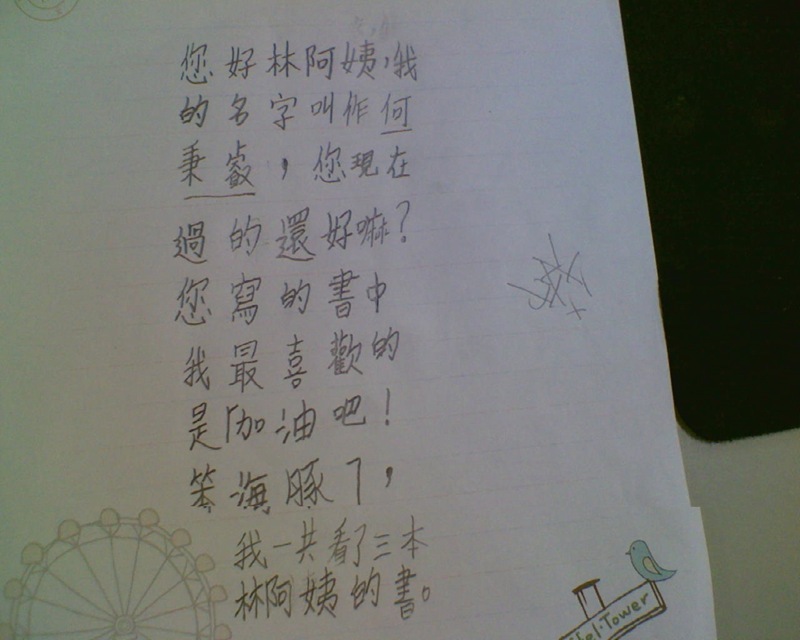 您好林阿姨,我
的名字叫作何
秉叡,您現在
過的還好嘛?
您寫的書中
我最喜歡的
是「加油吧!
笨海豚」,
我一共看了三本
林阿姨的書。